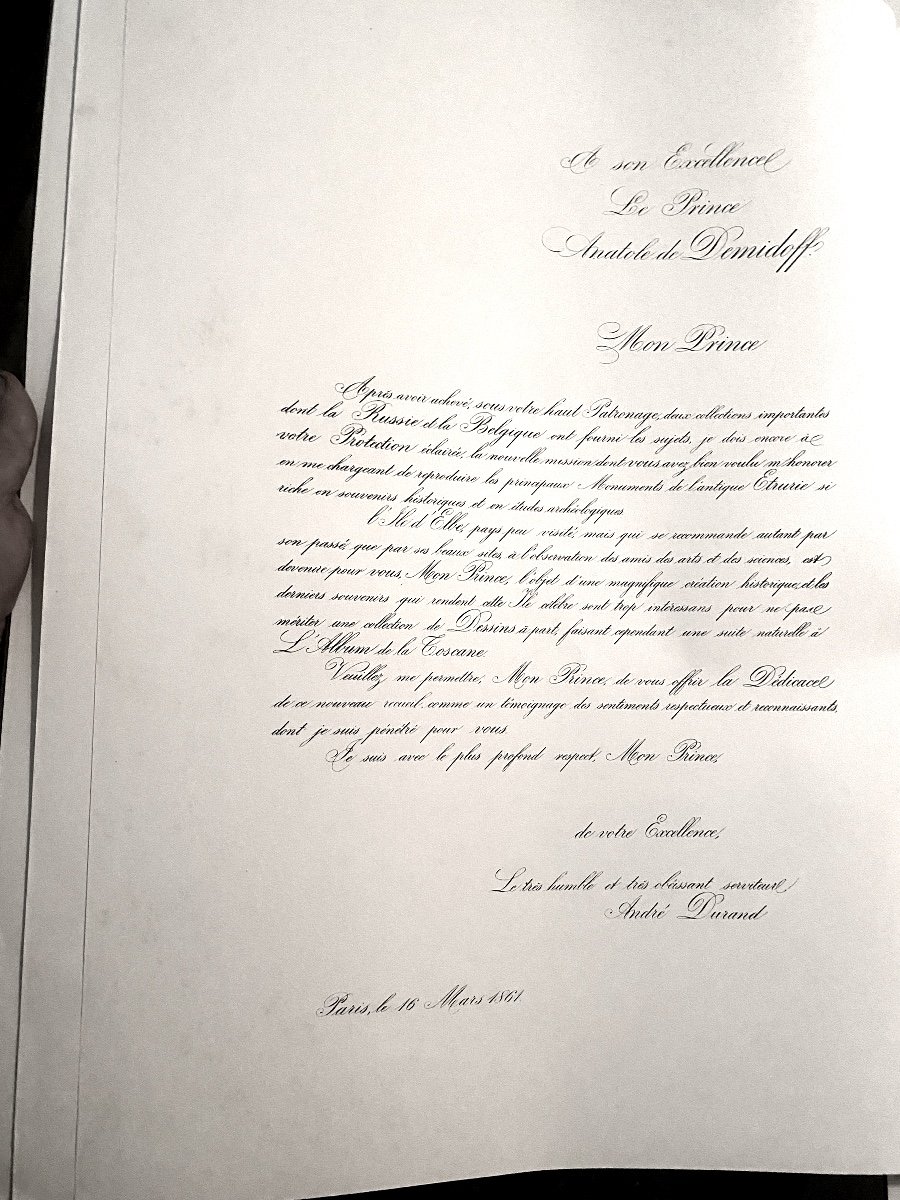 A son Excellence
Le Prince
Anatole de Demidoff.
Mon Prince
Après avoir achevé, sous votre haut Patronage, deux collections importantes
dont la Russie et la Belgique ont fourni les sujets, je dois encore à
votre Protection éclairée, la nouvelle mission dont vous avez bien voulu m'honorer
en me chargeant de reproduire les principaux Monuments de l'antique Etrurie si
riche en souvenirs historiques et en études archéologiques.
l'Ile d'Elbe, pays peu visité, mais qui se recommande autant par
son passé, que par ses beaux sites, à l'observation des amis des arts et des sciences, est
devenue pour vous, Mon Prince, l'objet d'une magnifique création historique, et les
derniers souvenirs qui rendent cette Ile célèbre sont trop intéressans pour ne pas
mériter une collection de Dessins à part, faisant cependant une suite naturelle à
L'Album de la Toscane.
Veuillez me permettre, Mon Prince, de vous offrir la Dédicace
de ce nouveau recueil comme un témoignage des sentiments respectueux et reconnaissants,
dont je suis pénétré pour vous.
Je suis avec le plus profond respect, Mon Prince,
de votre Excellence,
Le très humble et très obéissant serviteur
André Durand
Paris, le 16 Mars 1861.